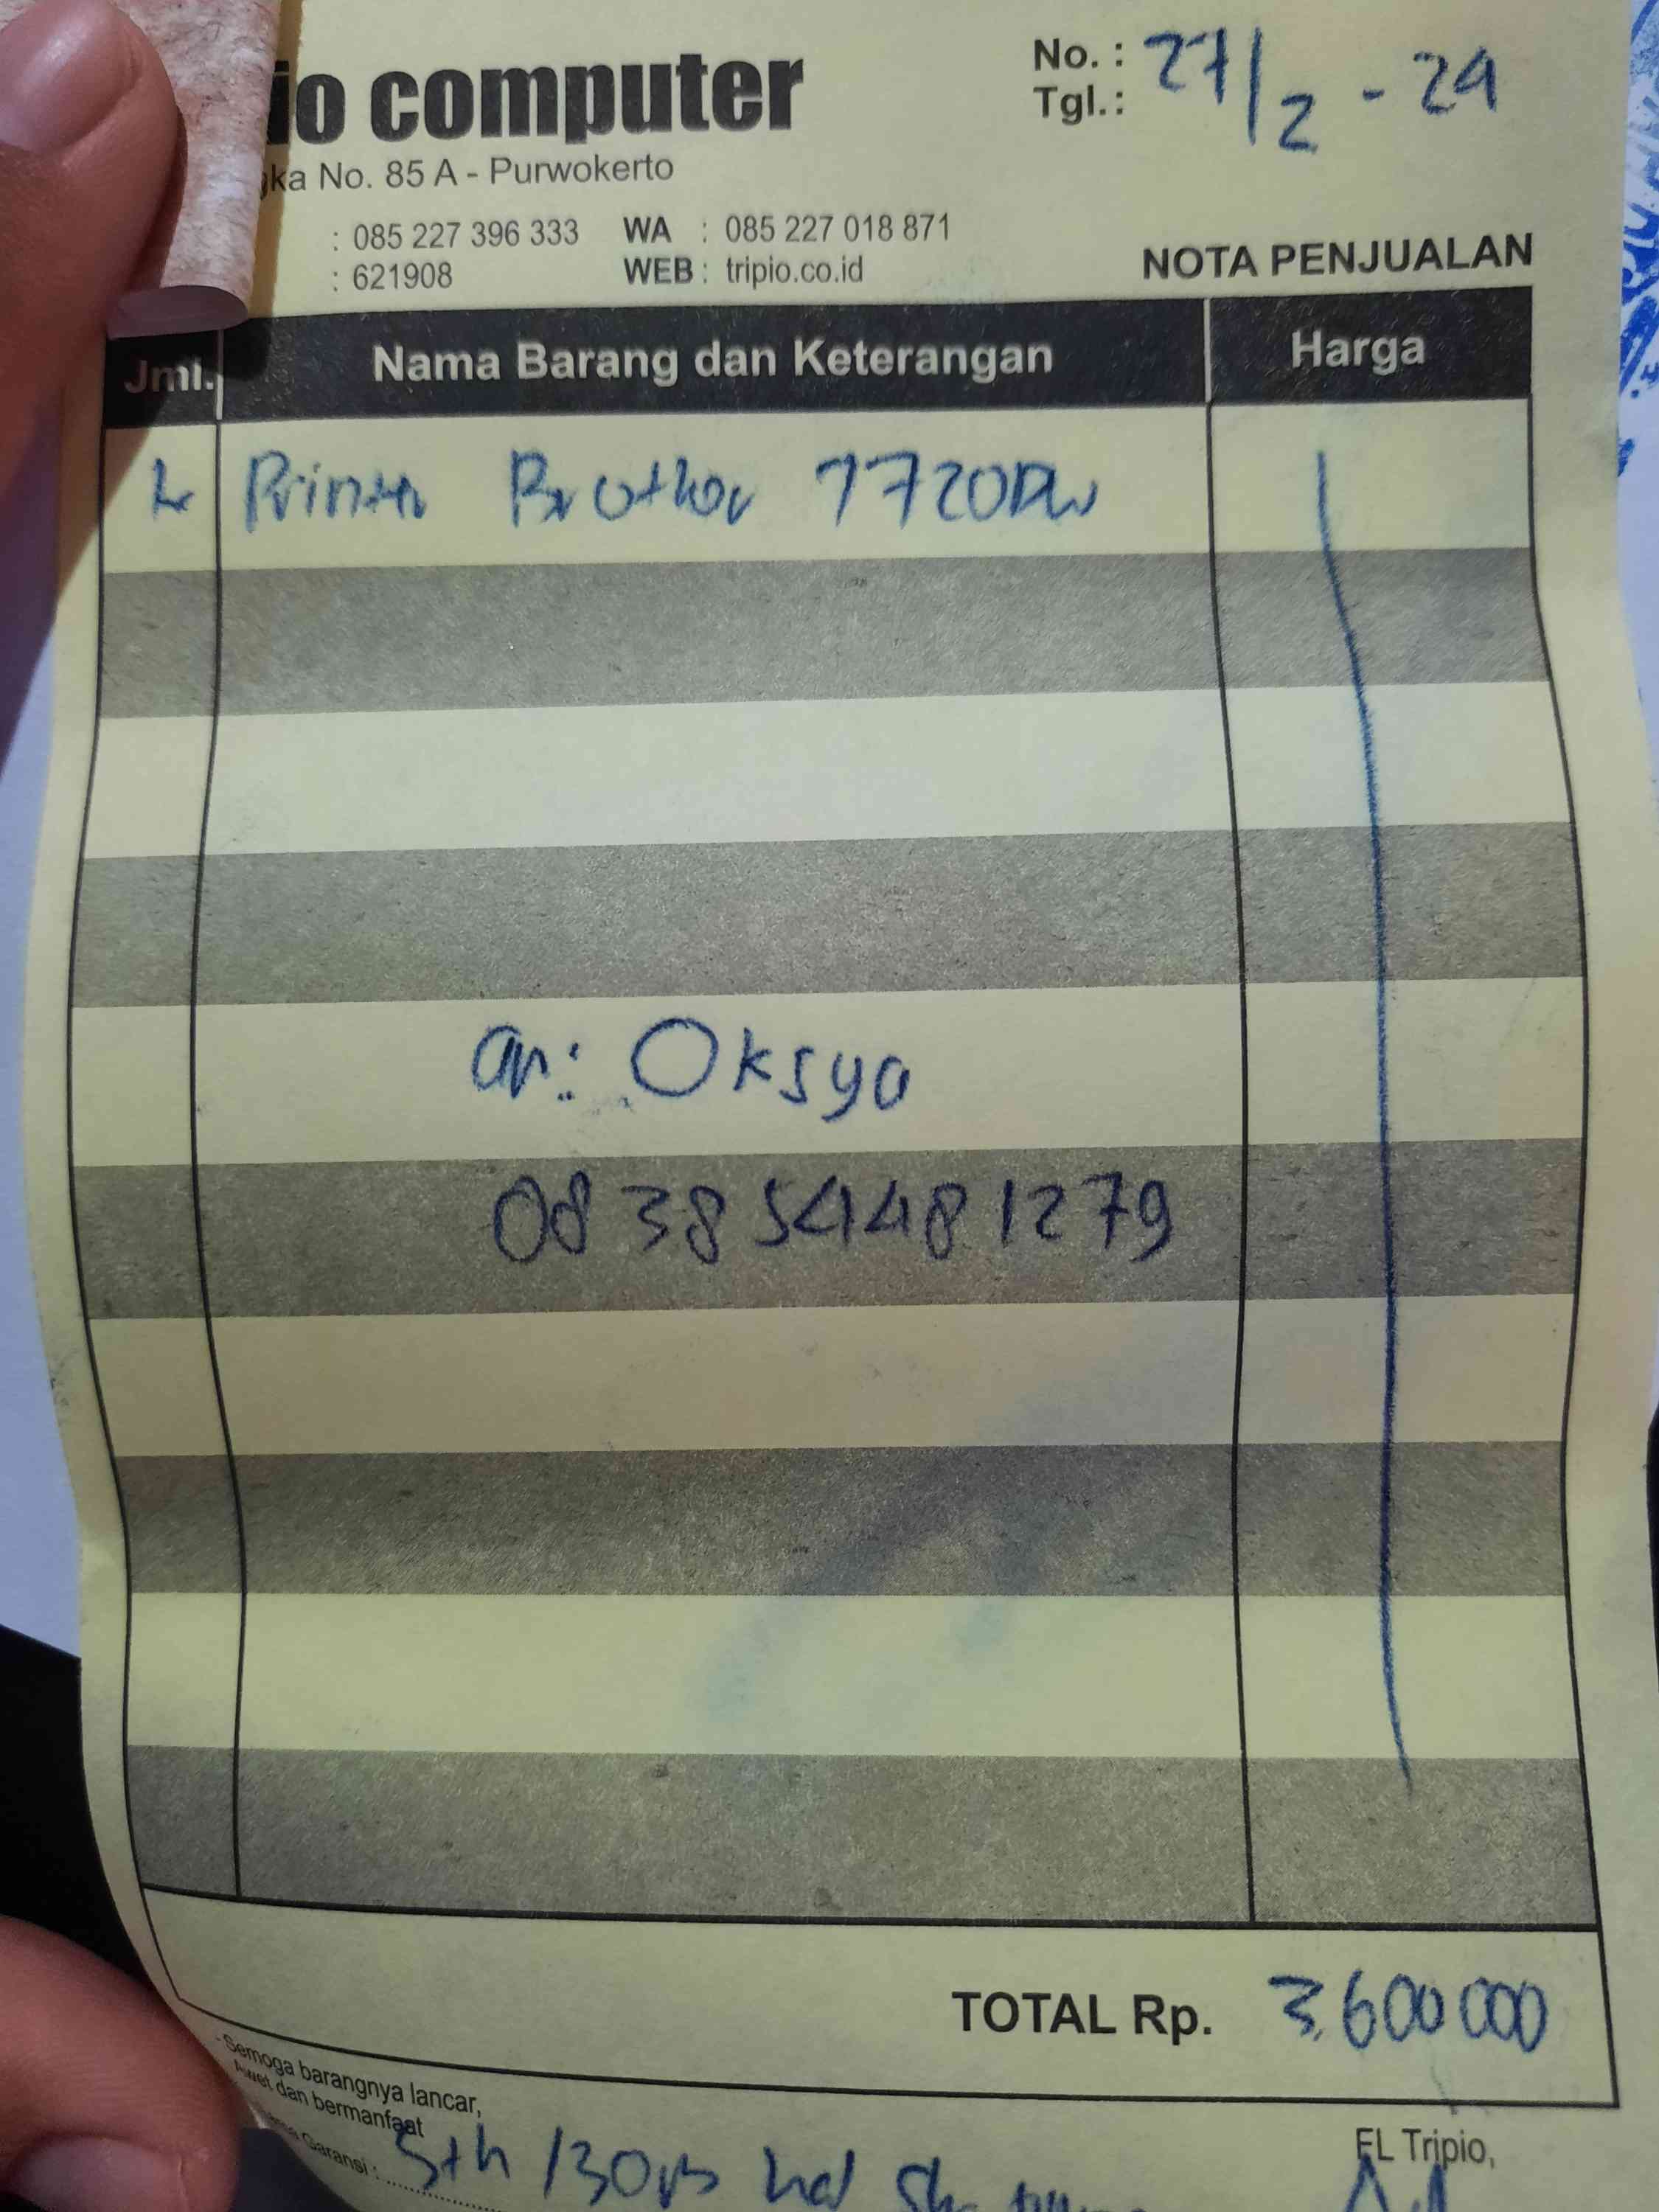 io computer
No. :
Tgl.: 27/2 - 24
gka No. 85 A - Purwokerto
: 085 227 396 333 WA : 085 227 018 871
: 621908 WEB : tripio.co.id
NOTA PENJUALAN
Jml. Nama Barang dan Keterangan Harga
Printer Brother 7720DW
an: Oksya
083854481279
TOTAL Rp. 3.600 000
- Semoga barangnya lancar,
Awet dan bermanfaat
Garansi :
EL Tripio,